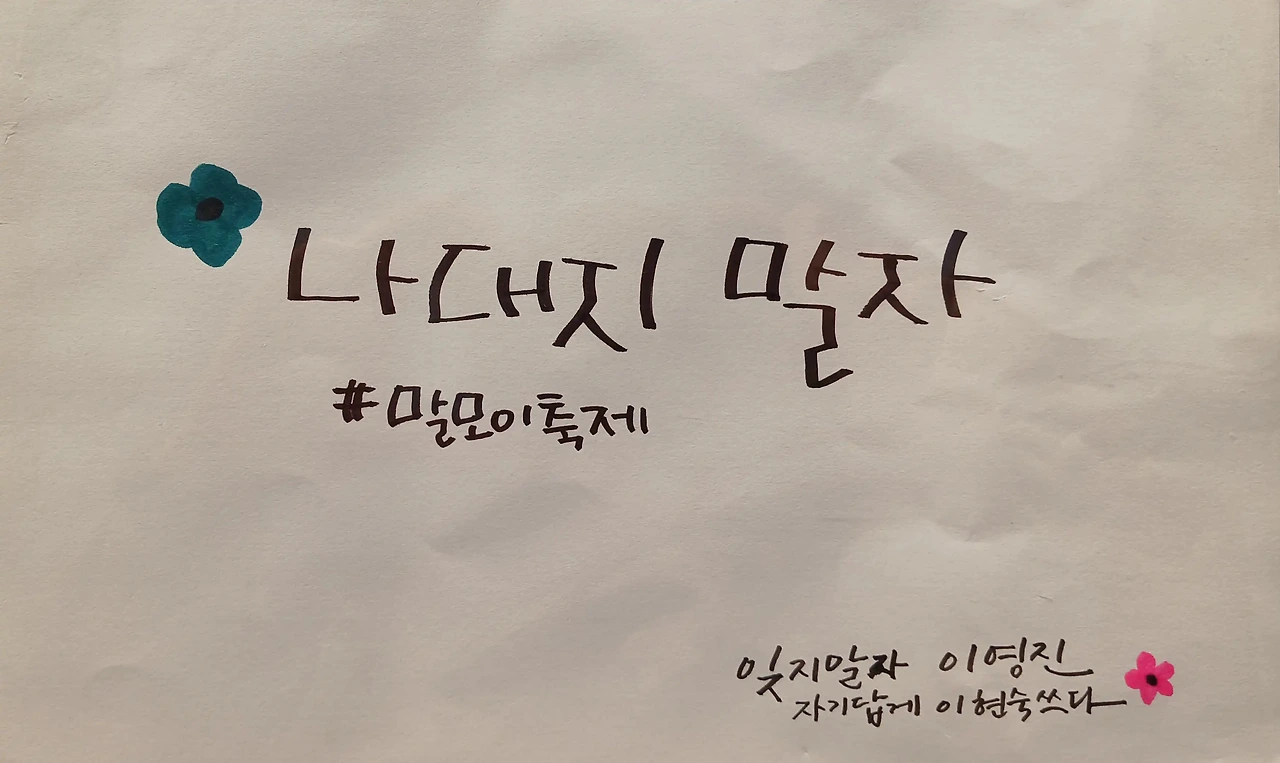 나대지 말자
#말모이축제
잊지말자 이영진
자기답게 이현숙쓰다